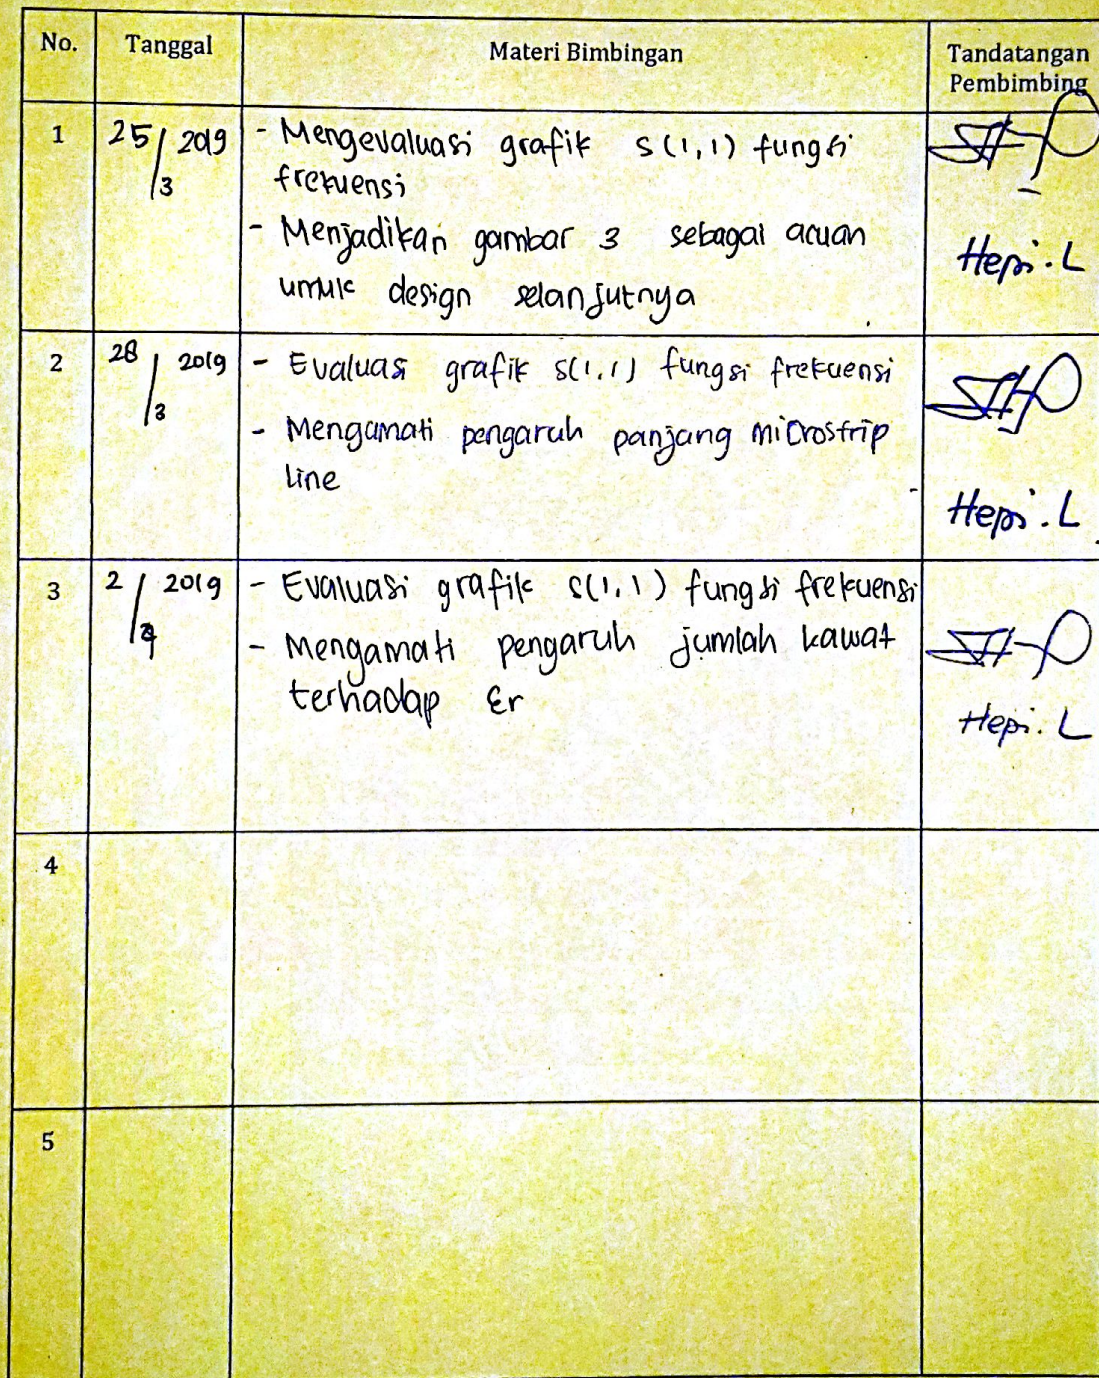 No. Tanggal Materi Bimbingan Tandatangan
Pembimbing
1 25/3 2019 - Mengevaluasi grafik S(1,1) fungsi
frekuensi
- Menjadikan gambar 3 sebagai acuan
untuk design selanjutnya
Hepi.L
2 28/3 2019 - Evaluasi grafik S(1,1) fungsi frekuensi
- Mengamati pengaruh panjang microstrip
line
Hepi.L
3 2/4 2019 - Evaluasi grafik S(1,1) fungsi frekuensi
- Mengamati pengaruh jumlah kawat
terhadap Er
Hepi.L
4
5